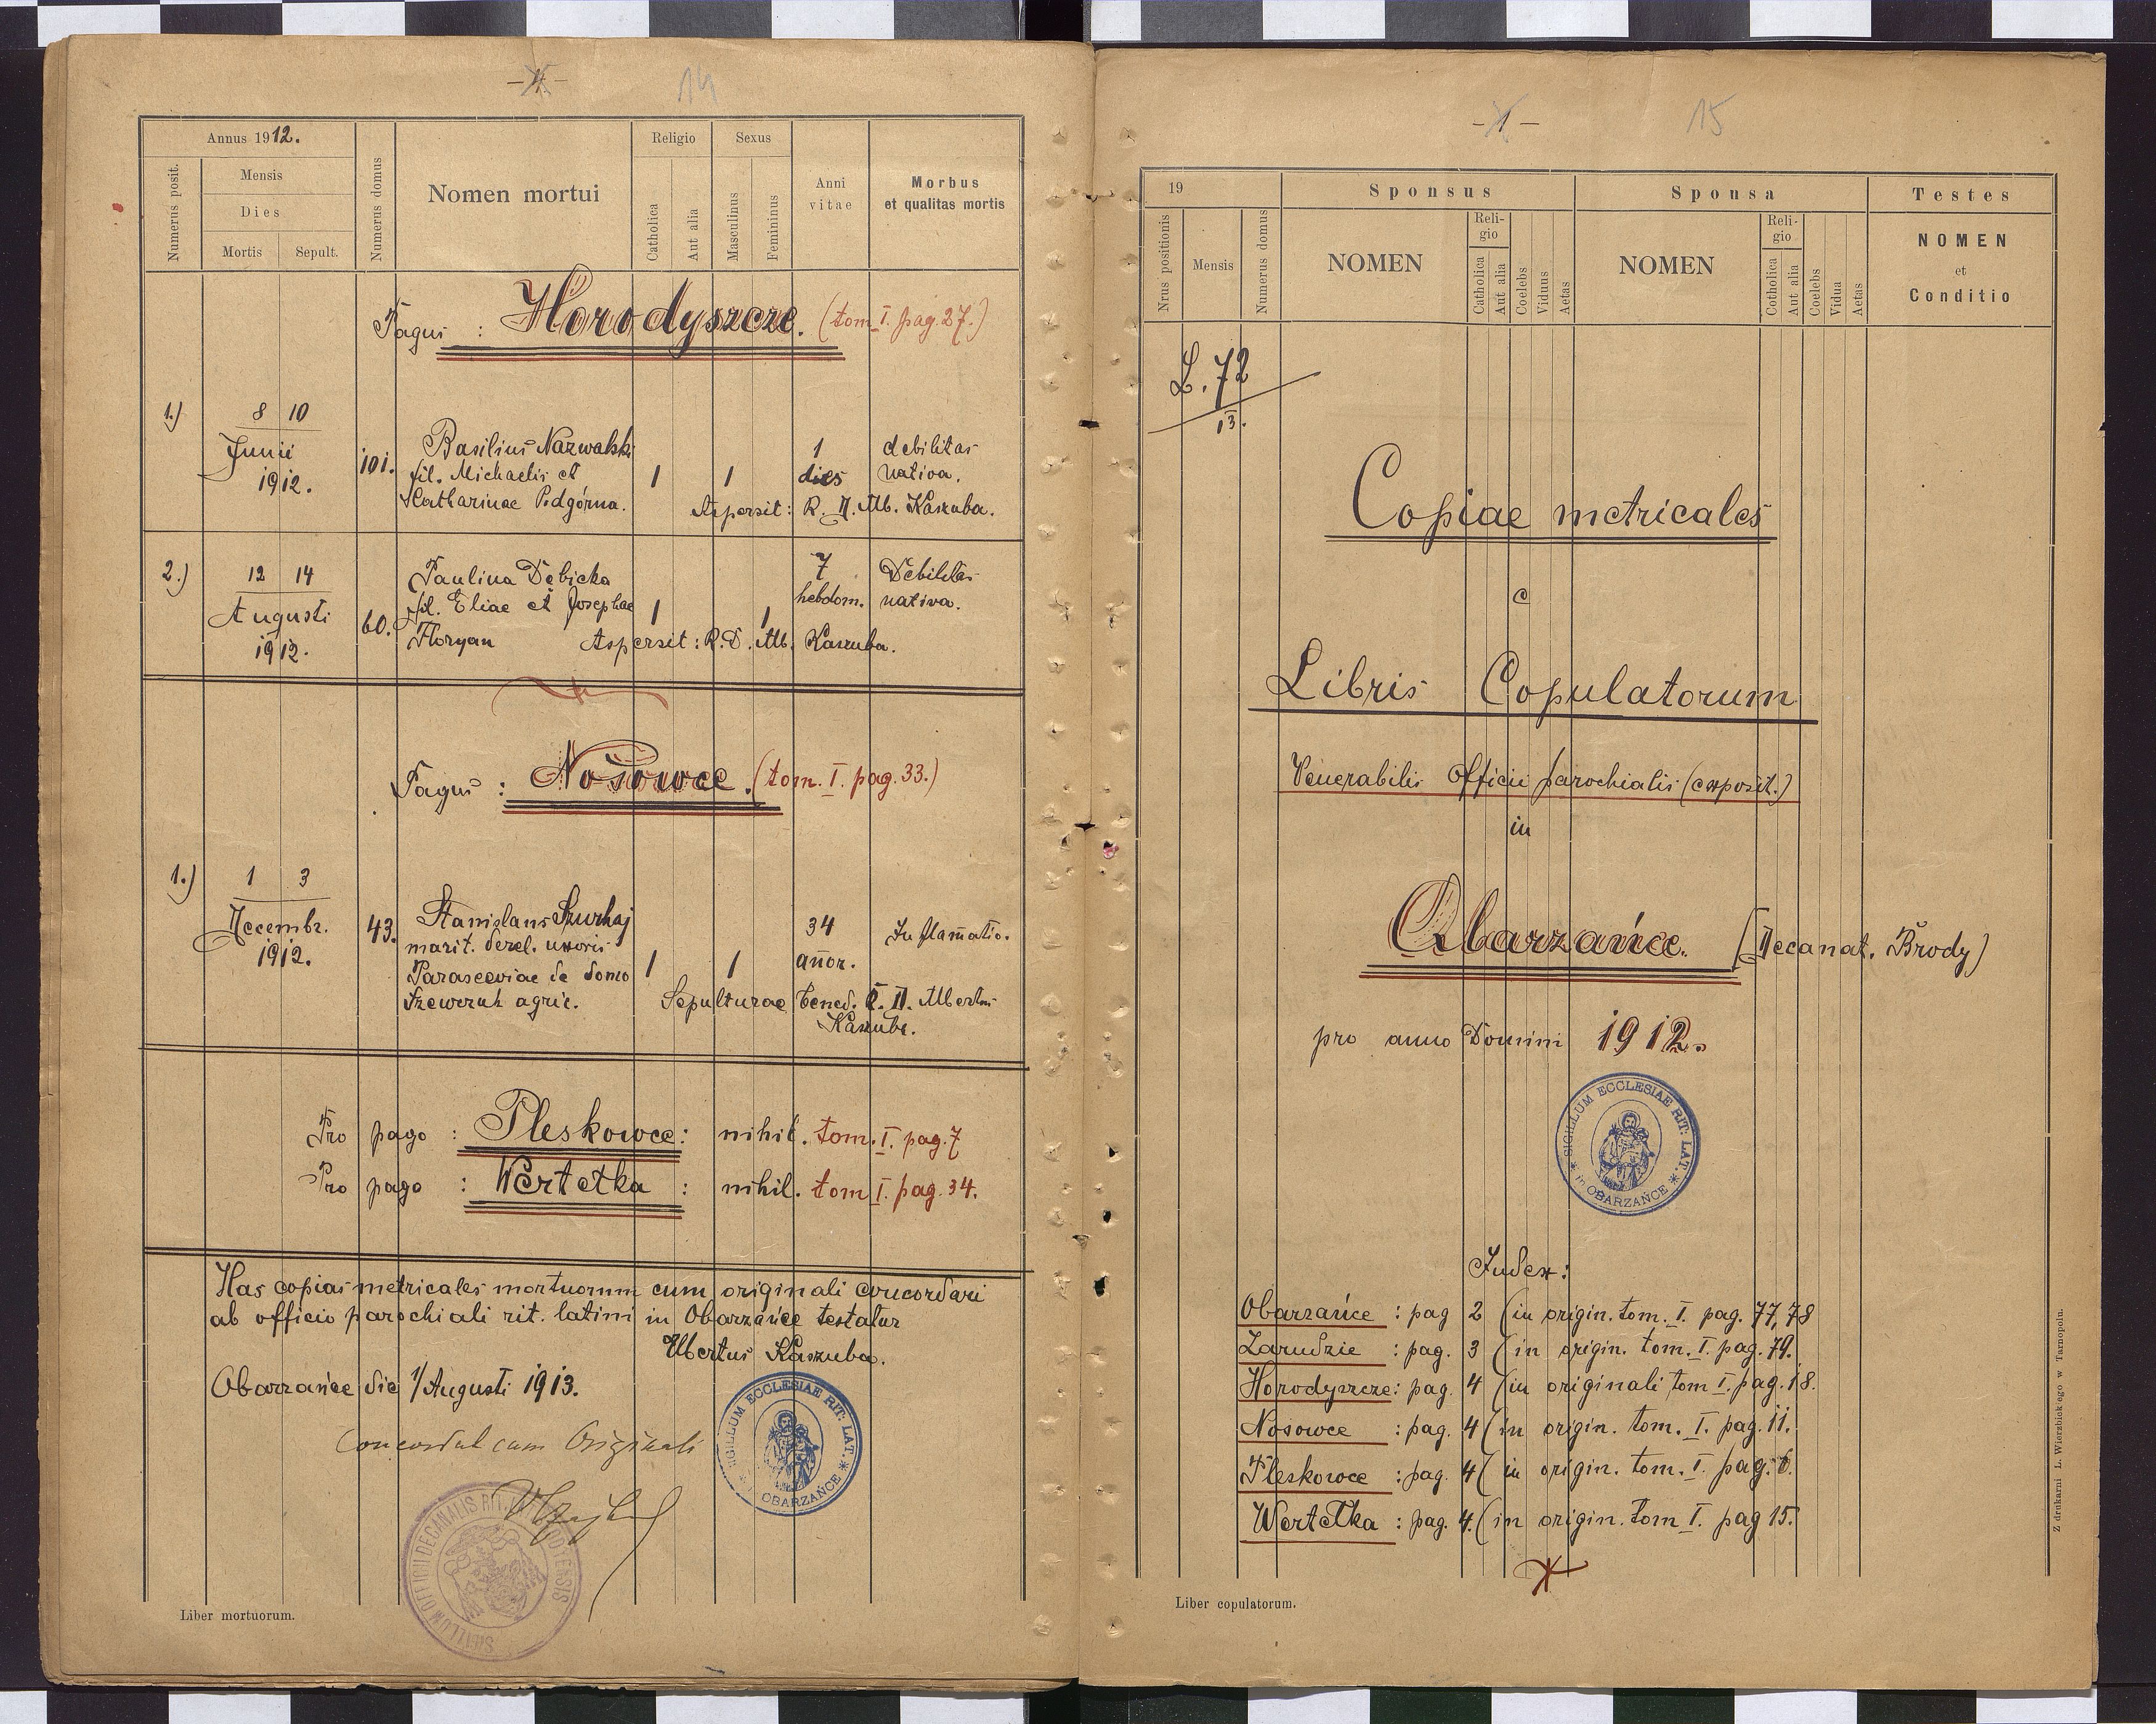 -4-
14
Annus 1912.
Numerus posit.
Mensis
Dies
Mortis
Sepult.
Numerus domus
Nomen mortui
Religio
Catholica
Aut alia
Sexus
Masculinus
Femininus
Anni
vitae
Morbus
et qualitas mortis
Pagus : Horodyszcze. (tom. I. pag. 27.)
1.) 8 10
Junii
1912.
101.
Basilius Nazwalski
fil. Michaelis et
Katharinae Podgórna.
1
1
1
dies
debilitas
nativa.
Aspersit: R. D. Alb. Kaszuba.
2.) 12 14
Augusti
1912.
60.
Paulina Dębicka
fil. Eliae et Josephae
Floryan
1
1
7
hebdom.
Debilitas
nativa.
Aspersit: R. D. Alb. Kaszuba.
Pagus : Nosowce. (tom. I. pag. 33.)
1.) 1 3
Decembr.
1912.
43.
Stanislaus Szurhaj
marit. derel. uxoris
Parasceviae de domo
Szewczuk agric.
1
1
34
annor.
Inflamatio.
Sepulturae bened. R. D. Albertus
Kaszuba.
Pro pago : Pleskowce : nihil. tom. I. pag. 7
Pro pago : Wertełka : nihil. tom I. pag. 34.
Has copias metricales mortuorum cum originali concordari
ab officio parochiali rit. latini in Obarzańce testatur
Albertus Kaszuba.
Obarzańce die 1/Augusti 1913.
SIGILLUM ECCLESIAE RIT: LAT. * in OBARZAŃCE *
Concordat cum Originali
SIGILLUM OFFICII DECANALIS RIT.
Liber mortuorum.
-1-
15
19
Nrus positionis
Mensis
Numerus domus
Sponsus
NOMEN
Reli-
gio
Catholica
Aut alia
Coelebs
Viduus
Aetas
Sponsa
NOMEN
Reli-
gio
Cotholica
Aut alia
Coelebs
Vidua
Aetas
Testes
NOMEN
et
Conditio
L. 72
13.
Copiae metricales
e
Libris Copulatorum
Venerabilis Officii parochialis (exposit.)
in
Obarzańce. (Decanat. Brody)
pro anno Domini 1912.
SIGILLUM ECCLESIAE RIT: LAT. * in OBARZAŃCE *
Index:
Obarzańce : pag 2 (in origin. tom. I. pag. 77, 78
Zarudzie : pag. 3 (in origin. tom. I. pag. 79.
Horodyszcze: pag. 4 (in originali tom I. pag. 18.
Nosowce : pag. 4 (in origin. tom. I. pag. 11.
Pleskowce : pag. 4 (in origin. tom. I. pag. 6.
Wertełka : pag. 4. (in origin. tom I. pag 15.
Liber copulatorum.
Z drukarni L. Wierzbickiego w Tarnopolu.